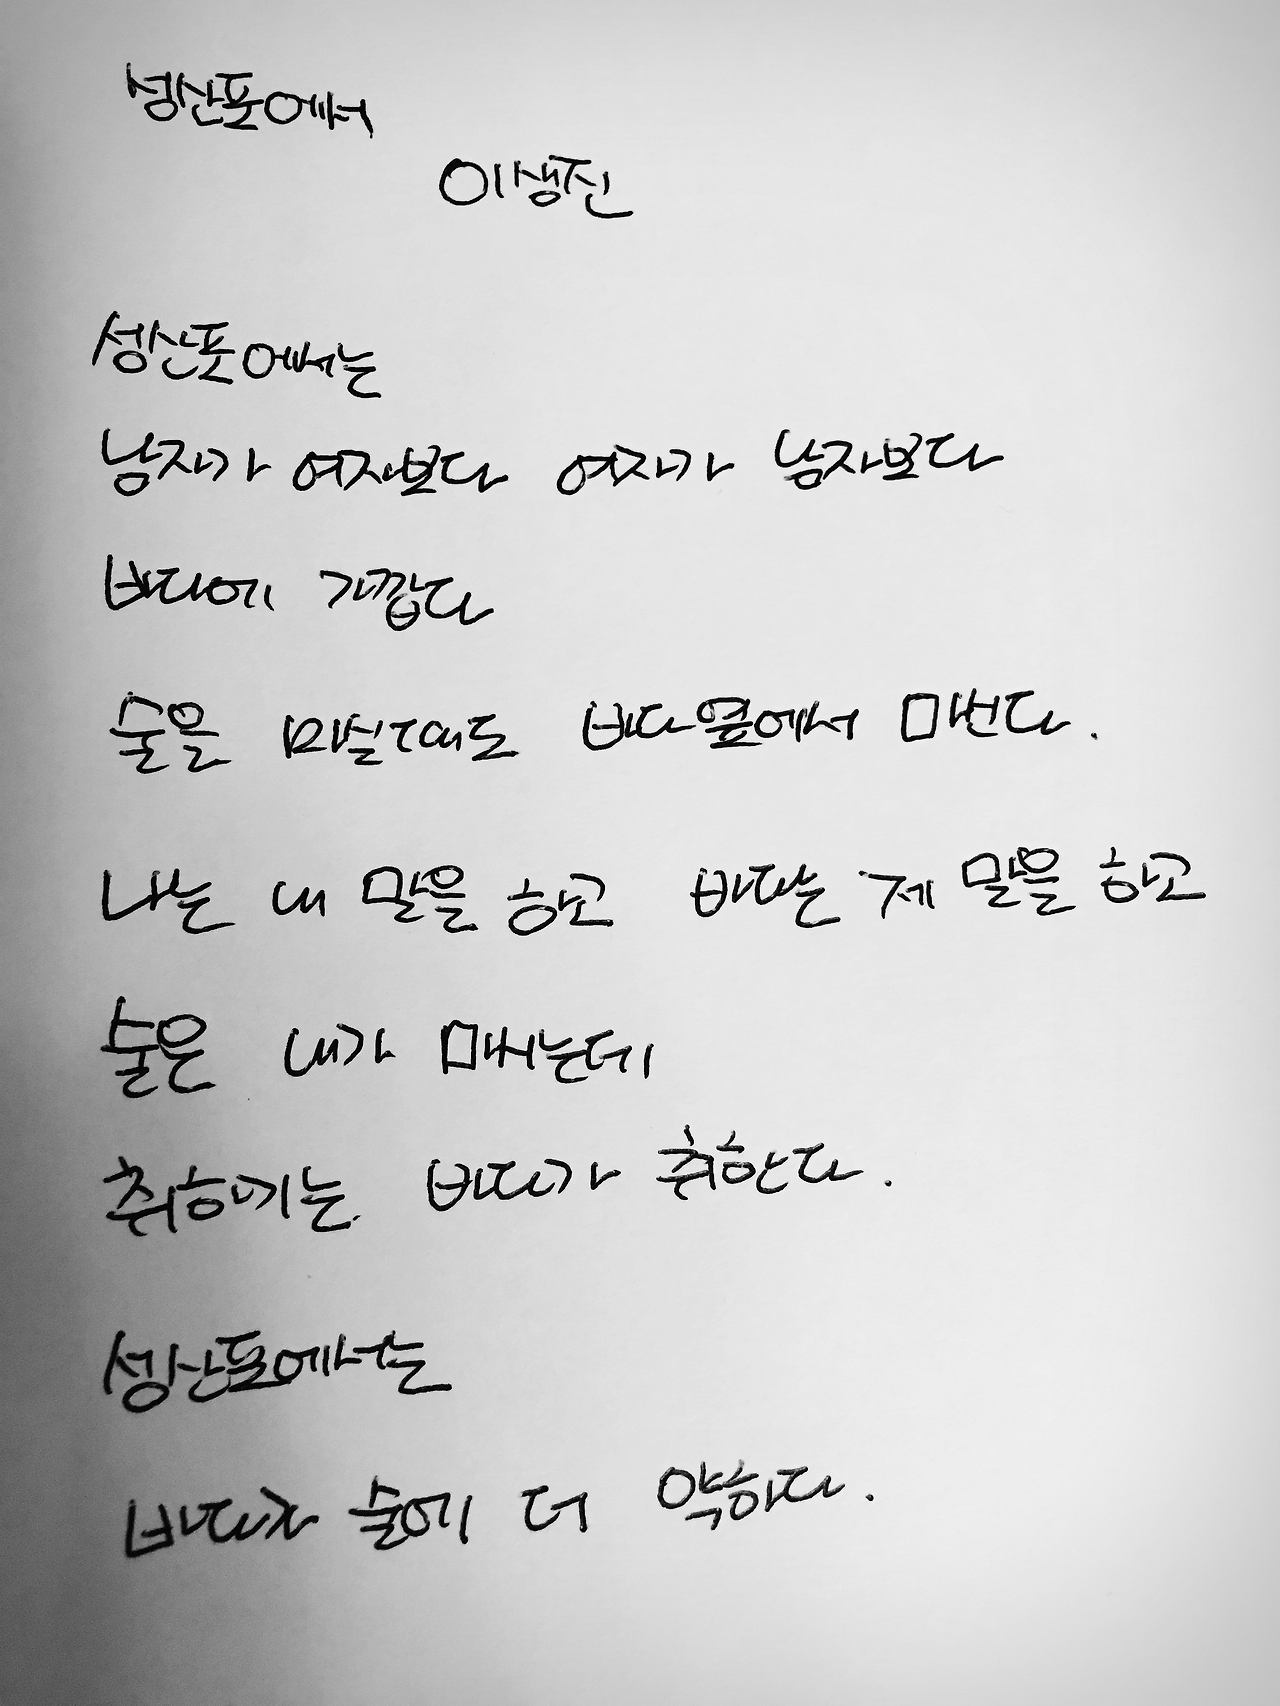 성산포에서
이생진
성산포에서는
남자가 여자보다 여자가 남자보다
바다에 가깝다
술을 마실때도 바다옆에서 마신다.
나는 내 말을 하고 바다는 제 말을 하고
술은 내가 마시는데
취하기는 바다가 취한다.
성산포에서는
바다가 술에 더 약하다.